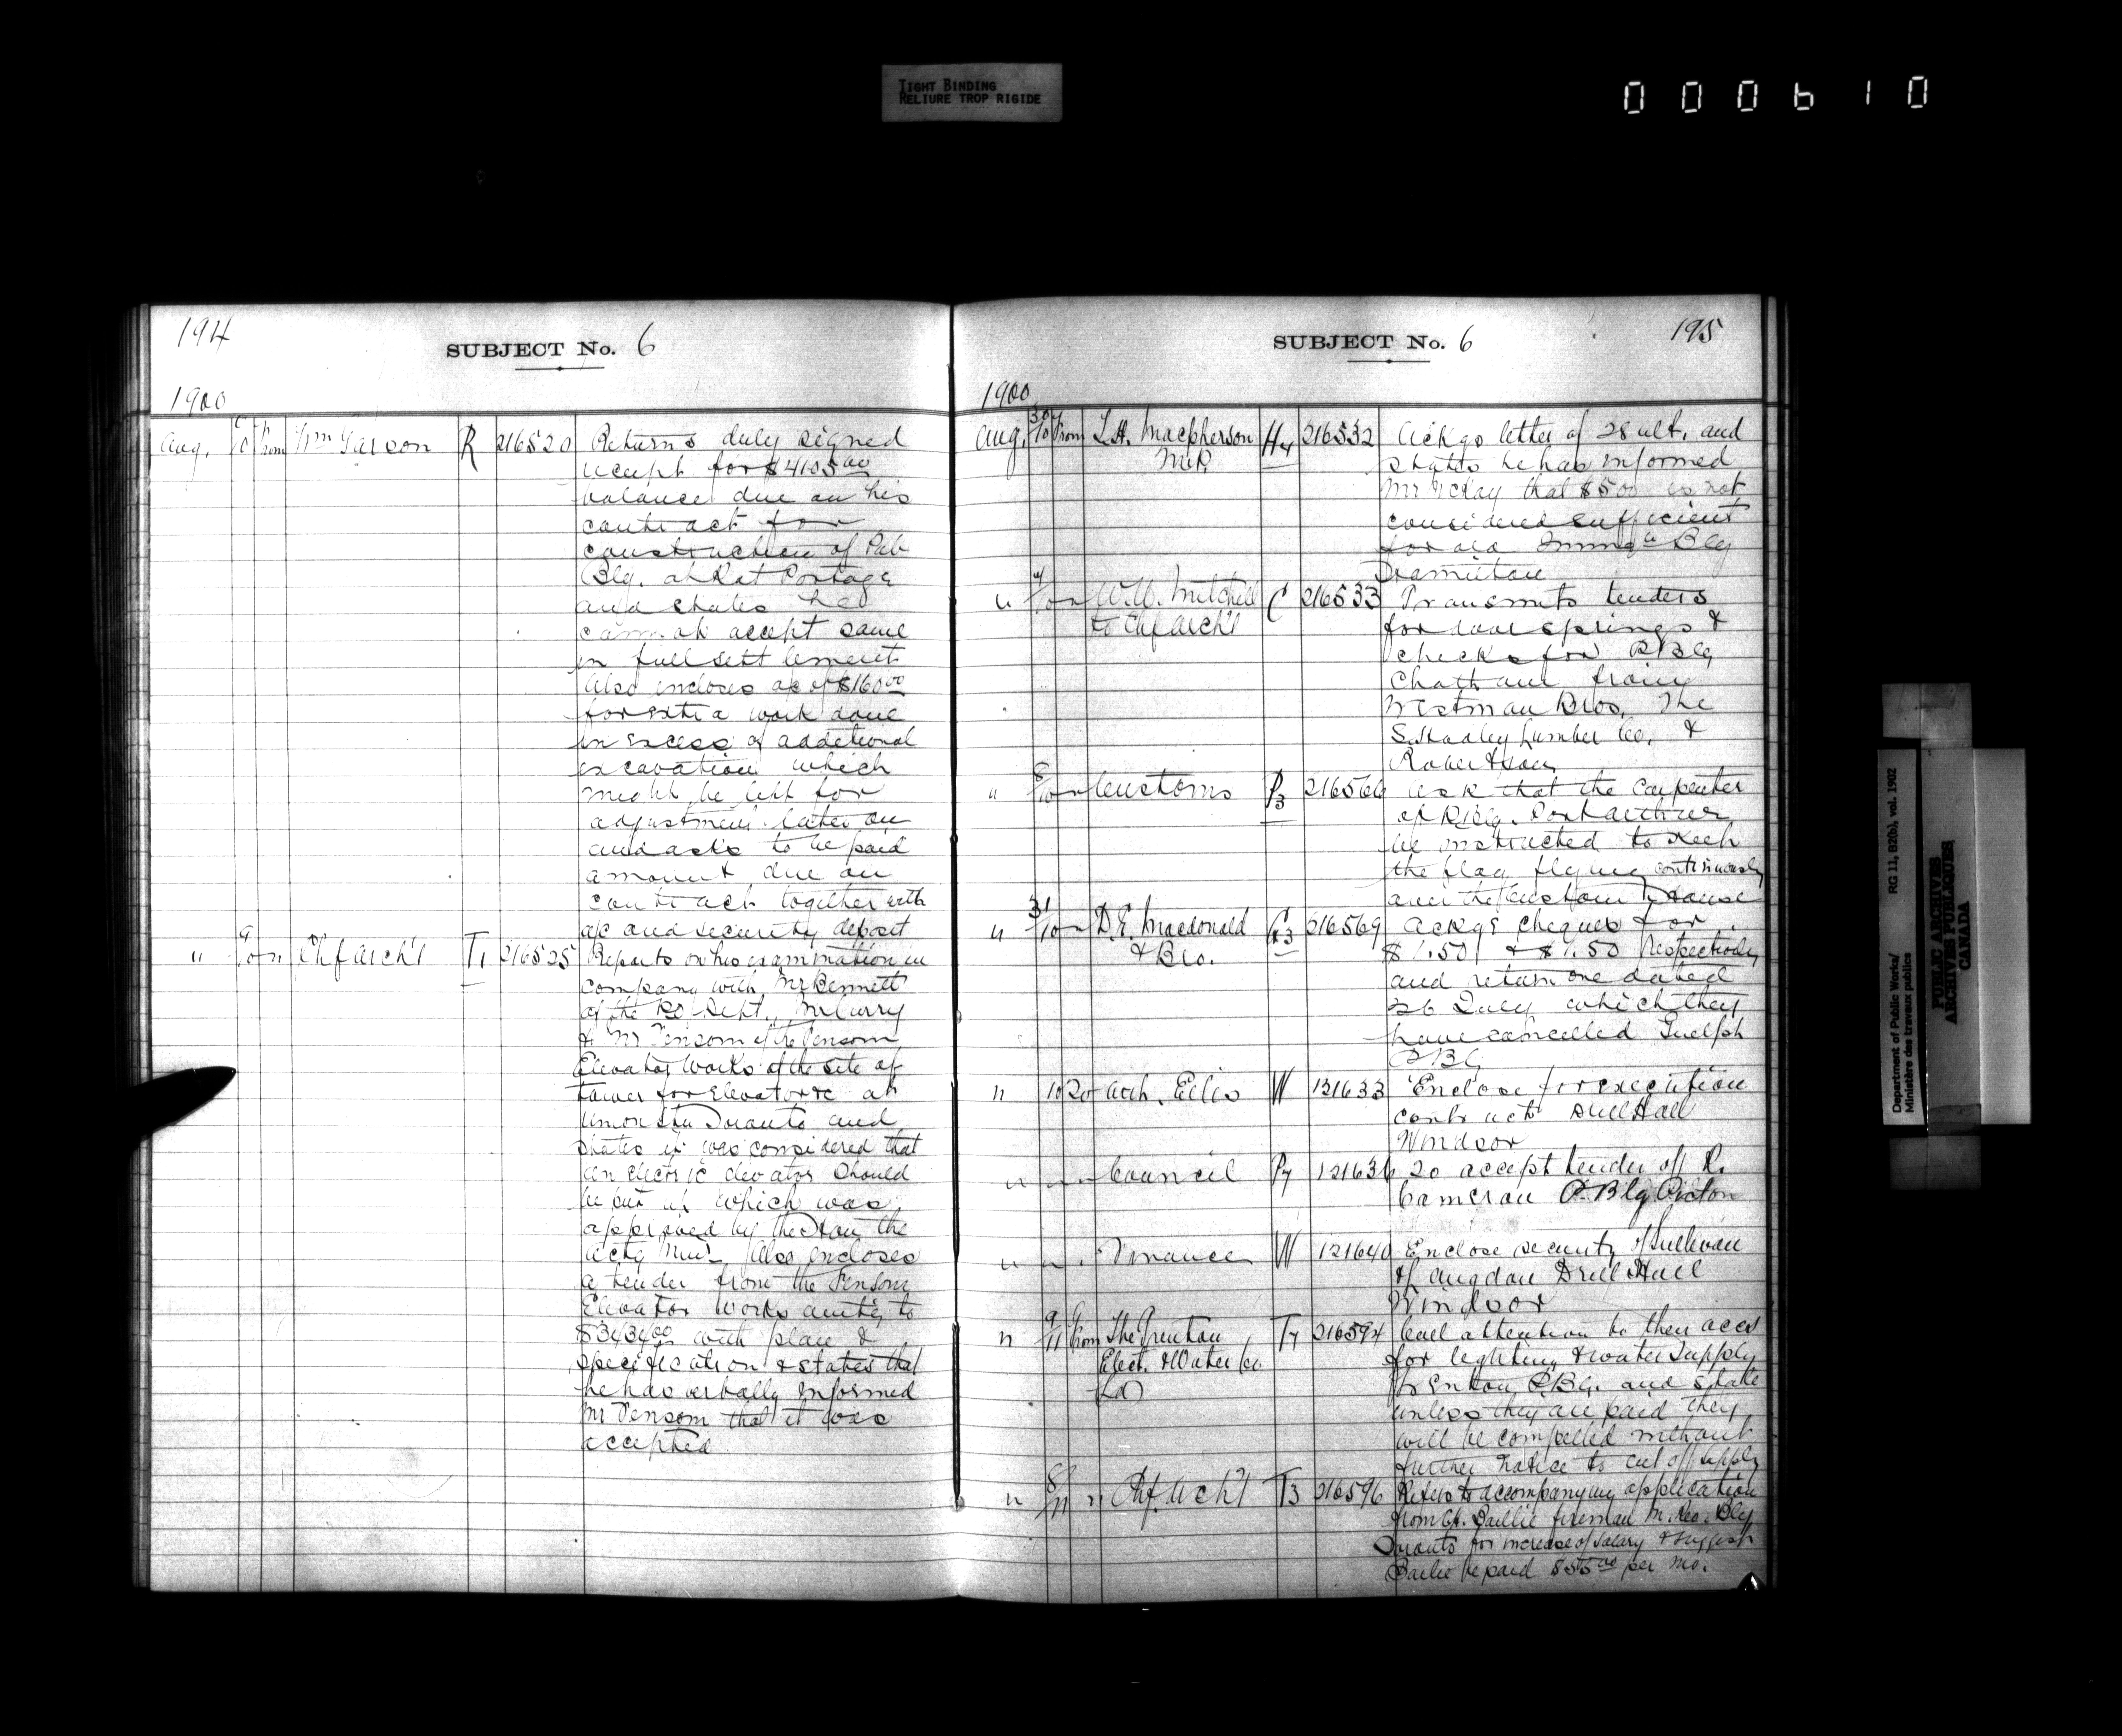 TIGHT BINDING
RELIURE TROP RIGIDE
000610
194
SUBJECT No. 6
1900
Aug. 10 from Wm Garson R 216520 Returns duly signed
receipt for $4105.00
balance due on his
contract for
construction of Pub
Blg. at Rat Portage
and states he
cannot accept same
in full settlement.
Also encloses a/c of $160.00
for extra work done
in excess of additional
excavation which
might be left for
adjustment later on
and asks to be paid
amount due on
contract together with
a/c and security deposit
" 9/10 " Chf Arch't T1 216525 Reports on his examination in
company with Mr Bennett
of the PO Dept., Mr Curry
& Mr Fensom of the Fensom
Elevator Works of the site of
tower for Elevator &c at
Union Stn Toronto and
states it was considered that
an electric elevator should
be put in which was
approved by the Hon. the
Actg Minr. Also encloses
a tender from the Fensom
Elevator Works amtg to
$3434.00 with plan &
specification & states that
he has verbally informed
Mr Fensom that it was
accepted
195
SUBJECT No. 6
1900
Aug. 30/10 from T.H. Macpherson H4 216532 Ackgs letter of 28 ult. and
M.P. states he has informed
Mr McKay that $500 is not
considered sufficient
for old Immign Blg
Hamilton
" 4/10 " W.W. Mitchell C 216533 Transmits tenders
to Chf Arch't for door springs &
checks for P Blg
Chatham from
Westman Bros, The
S. Hadley Lumber Co. &
Robertson
" 8/10 " Customs P3 216566 Ask that the Carpenter
of P Blg. Port Arthur
be instructed to keep
the flag flying continuously
over the Custom House
" 31/10 " D.E. Macdonald G3 216569 Ackge cheques for
& Bro. $1.50 & $1.50 respectively
and return one dated
26 July which they
have cancelled Guelph
P Bg
" 10 To Arch. Ellis W 121633 Enclose for execution
contract Drill Hall
Windsor
" " " Council P7 121636 To accept tender of R.
Cameron P. Blg Picton
" " " Finance W 121640 Enclose security of Sullivan
& Langdon Drill Hall
Windsor
" 9/11 from The Trenton T4 216594 Call attention to their accs
Elect. & Water Co. for lighting & water supply
Ld Trenton P.Bg. and state
unless they are paid they
will be compelled without
further notice to cut off supply
" 8/11 " Chf. Arch't T3 216596 Refers to accompanying application
from G. Baillie fireman M. Reo. Blg
Toronto for increase of salary & suggest
Bailie be paid $55.00 per mo.
Department of Public Works/
Ministère des travaux publics
RG 11, B2(b), vol. 1902
PUBLIC ARCHIVES
ARCHIVES PUBLIQUES
CANADA